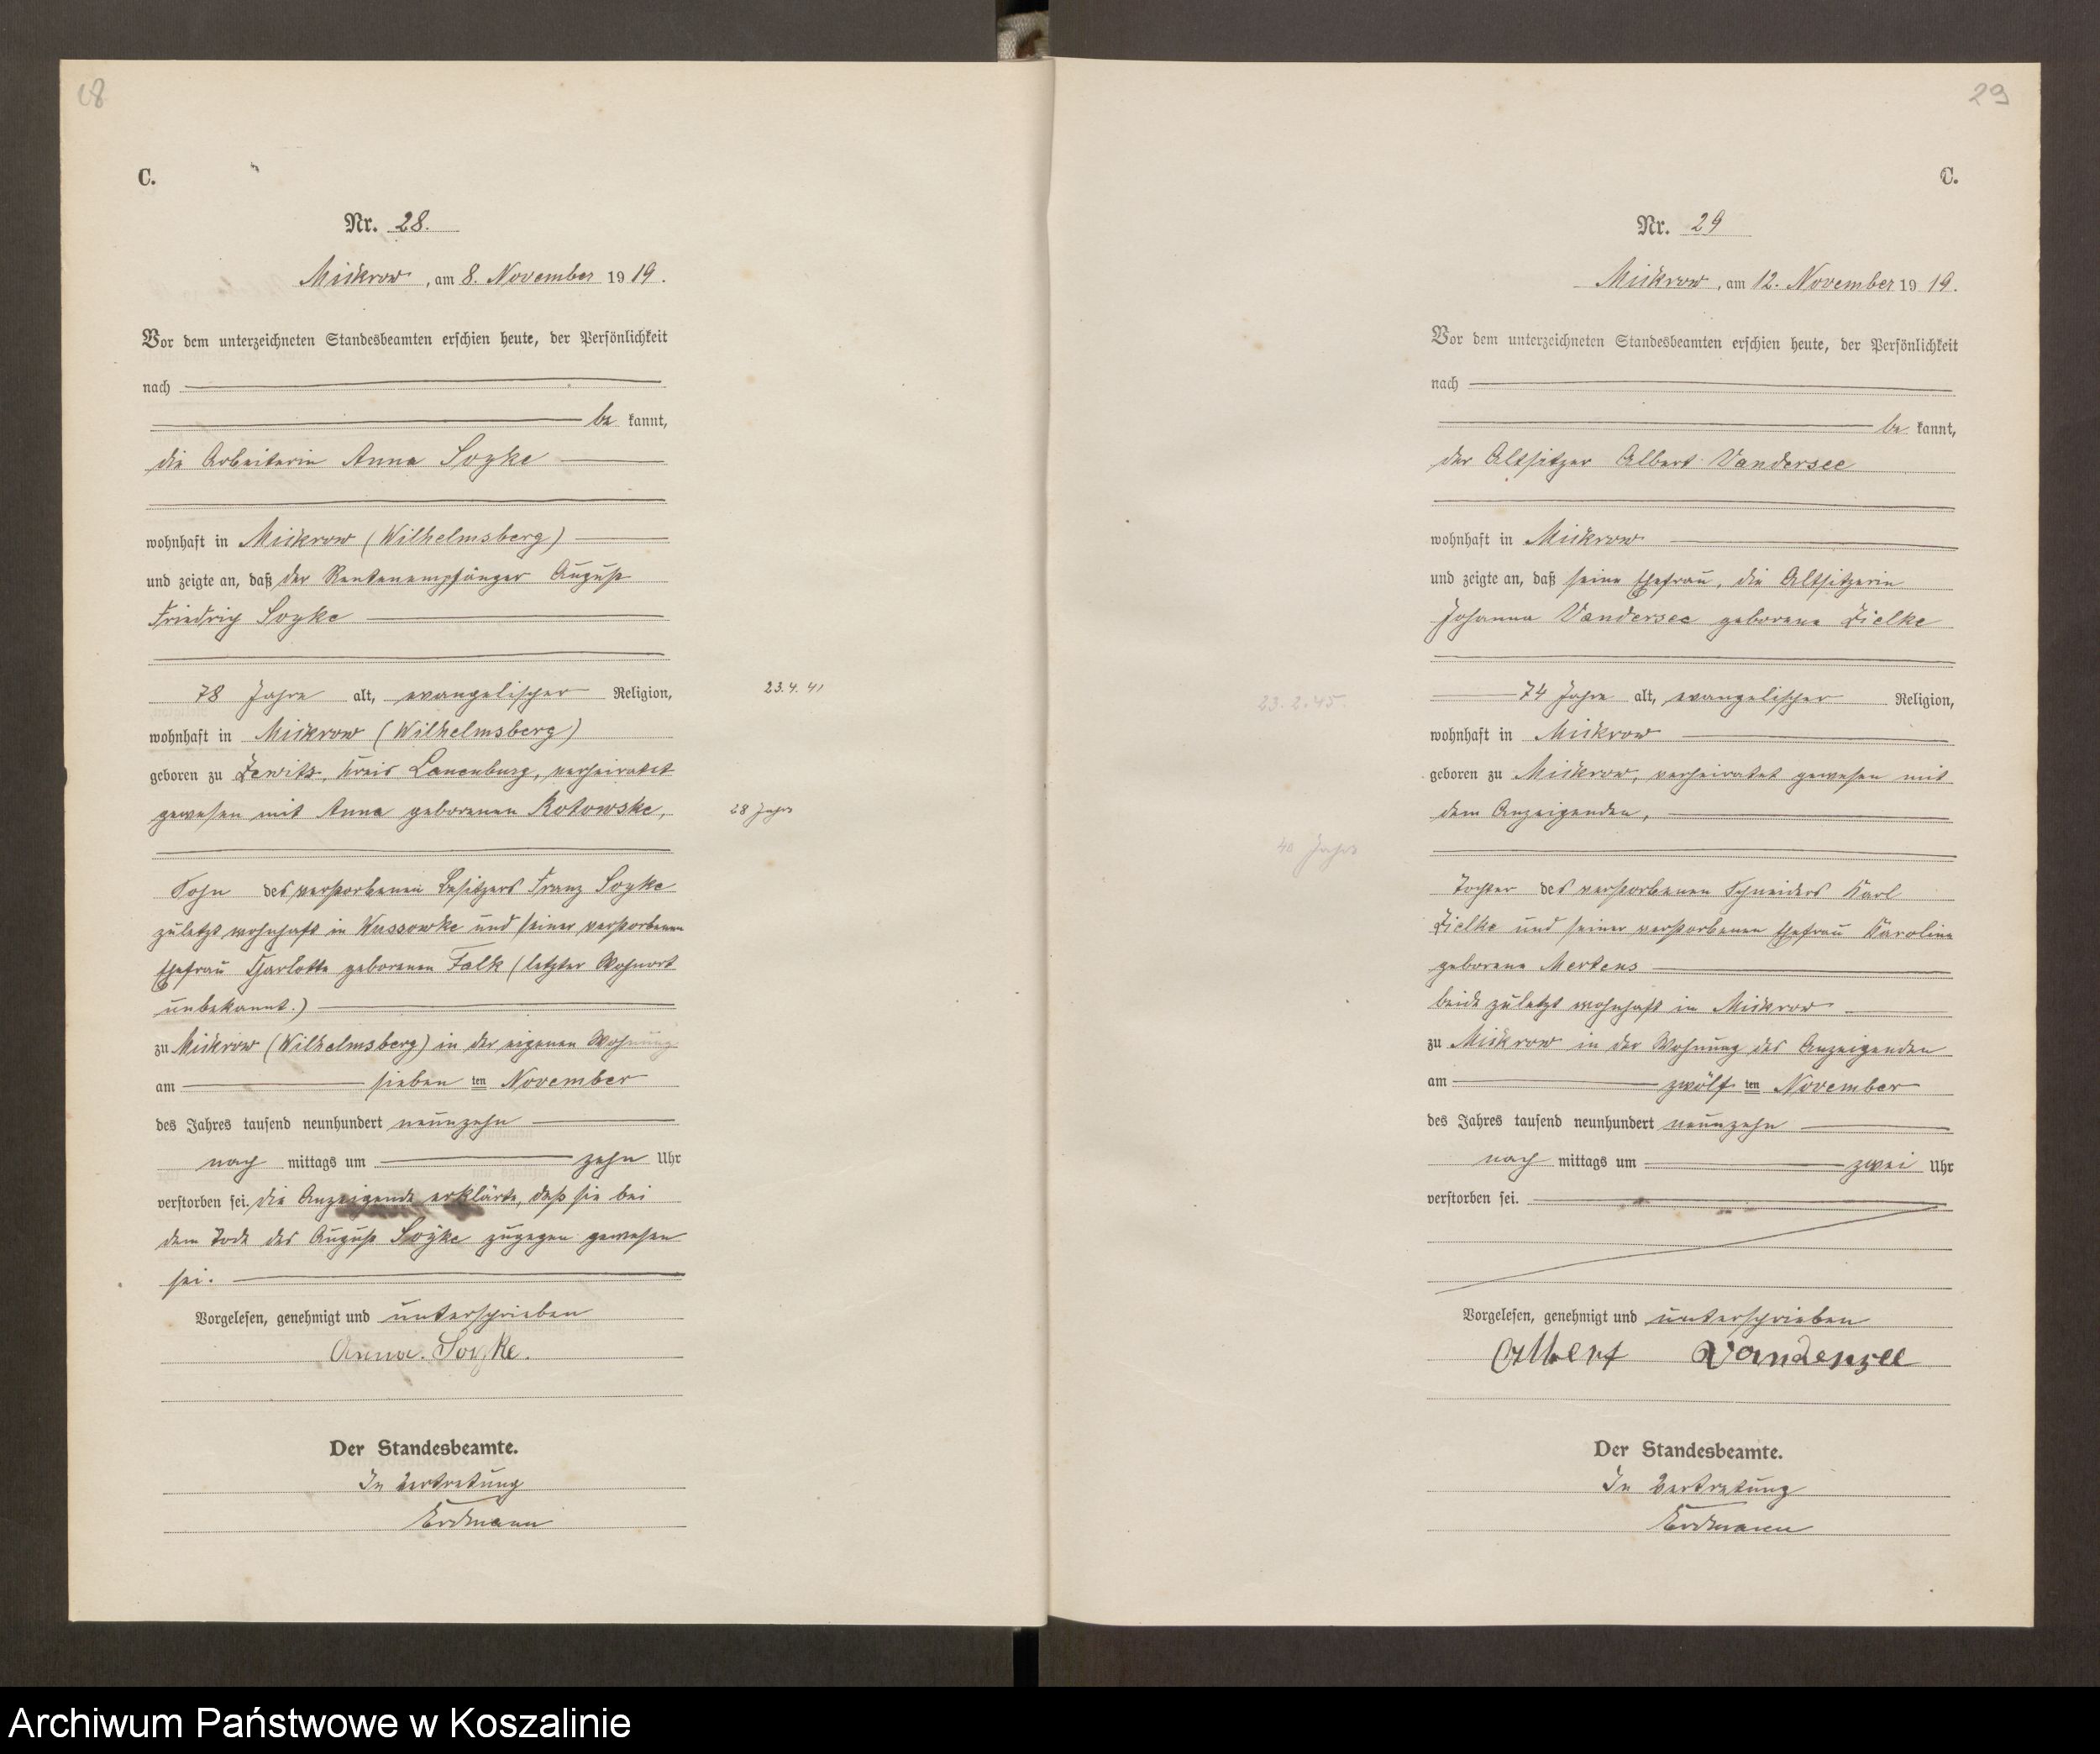 28
C.
Nr. 28.
Mickrow, am 8. November 1919.
Vor dem unterzeichneten Standesbeamten erschien heute, der Persönlichkeit
nach
be kannt,
die Arbeiterin Anna Soyke
wohnhaft in Mickrow (Wilhelmsberg)
und zeigte an, daß der Rentenempfänger August
Friedrich Soyke
78 Jahre alt, evangelischer Religion,
23.4.41
wohnhaft in Mickrow (Wilhelmsberg)
geboren zu Zewitz, Kreis Lauenburg, verheiratet
gewesen mit Anna geborenen Kotowske,
28 Jahre
Sohn des verstorbenen Besitzers Franz Soyke
zuletzt wohnhaft in Wussowke und seiner verstorbenen
Ehefrau Charlotte geborenen Falk (letzter Wohnort
unbekannt.)
zu Mickrow (Wilhelmsberg) in der eigenen Wohnung
am sieben ten November
des Jahres tausend neunhundert neunzehn
nach mittags um zehn Uhr
verstorben sei. die Anzeigende erklärte, daß sie bei
dem Tode des August Soyke zugegen gewesen
sei.
Vorgelesen, genehmigt und unterschrieben
Anna. Soyke.
Der Standesbeamte.
In Vertretung
Erdmann
29
C.
Nr. 29
Mickrow, am 12. November 1919.
Vor dem unterzeichneten Standesbeamten erschien heute, der Persönlichkeit
nach
be kannt,
der Altsitzer Albert Vandersee
wohnhaft in Mickrow
und zeigte an, daß seine Ehefrau, die Altsitzerin
Johanna Vandersee geborene Zielke
23.2.45.
74 Jahre alt, evangelischer Religion,
wohnhaft in Mickrow
geboren zu Mickrow, verheiratet gewesen mit
dem Anzeigenden,
40 Jahre
Tochter des verstorbenen Schneiders Karl
Zielke und seiner verstorbenen Ehefrau Karoline
geborene Mertens
beide zuletzt wohnhaft in Mickrow
zu Mickrow in der Wohnung des Anzeigenden
am zwölf ten November
des Jahres tausend neunhundert neunzehn
nach mittags um zwei Uhr
verstorben sei.
Vorgelesen, genehmigt und unterschrieben
Albert Vandersee
Der Standesbeamte.
In Vertretung
Erdmann
Archiwum Państwowe w Koszalinie